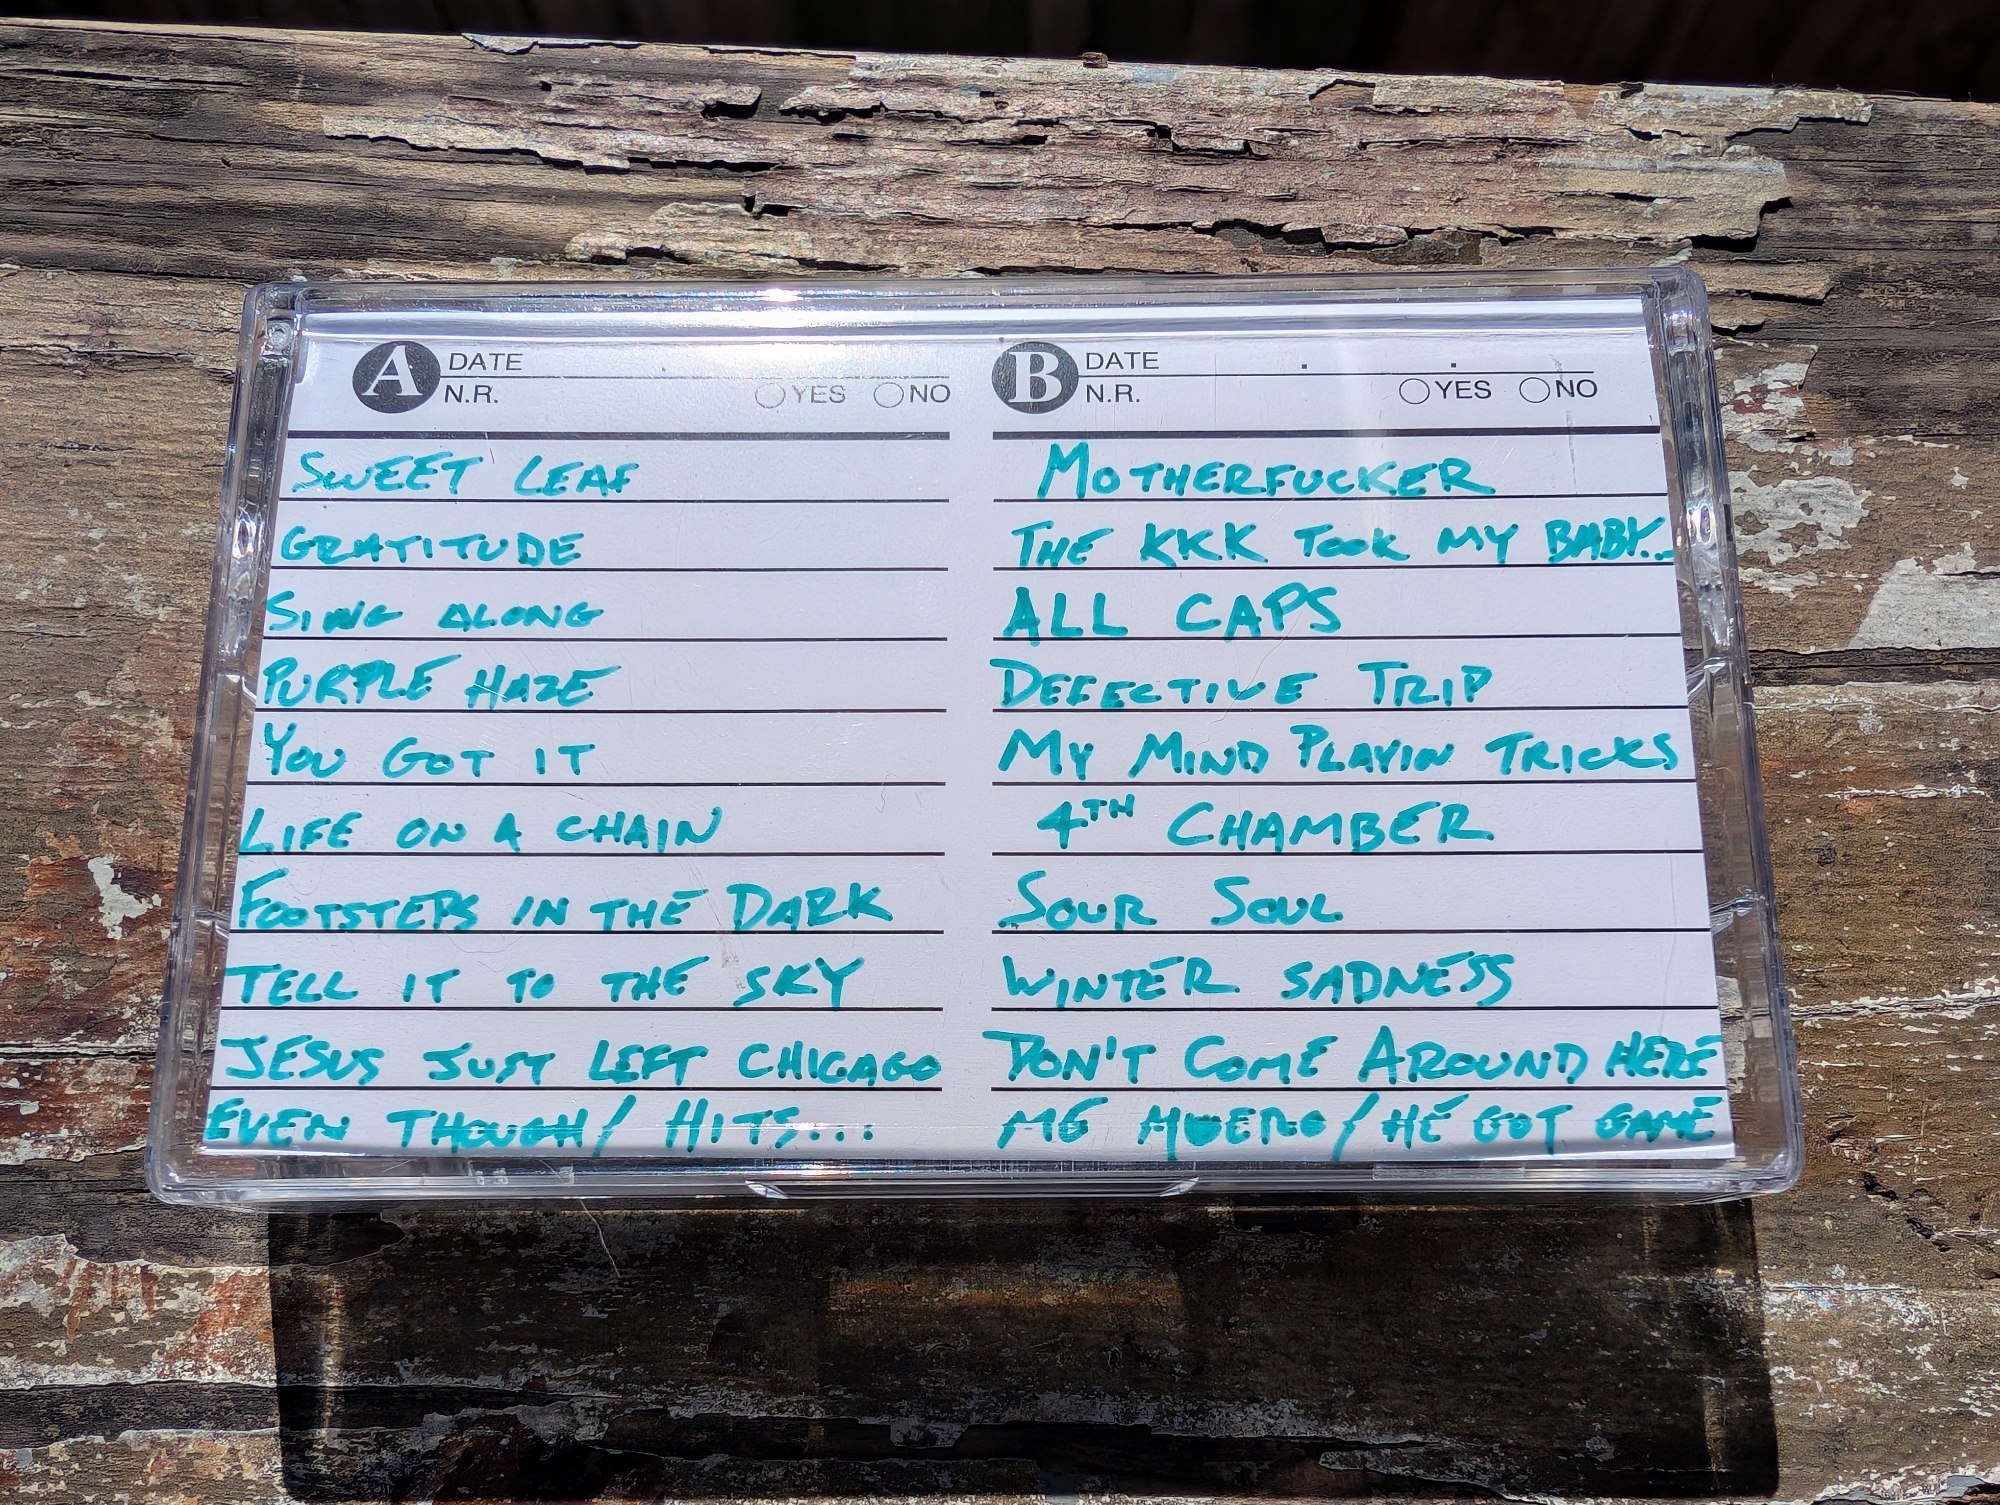 A DATE
N.R. YES NO
SWEET LEAF
GRATITUDE
SING ALONG
PURPLE HAZE
YOU GOT IT
LIFE ON A CHAIN
FOOTSTEPS IN THE DARK
TELL IT TO THE SKY
JESUS JUST LEFT CHICAGO
EVEN THOUGH/ HITS...
B DATE . .
N.R. YES NO
MOTHERFUCKER
THE KKK TOOK MY BABY..
ALL CAPS
DEFECTIVE TRIP
MY MIND PLAYIN TRICKS
4TH CHAMBER
SOUR SOUL
WINTER SADNESS
DON'T COME AROUND HERE
ME / HE GOT GAME